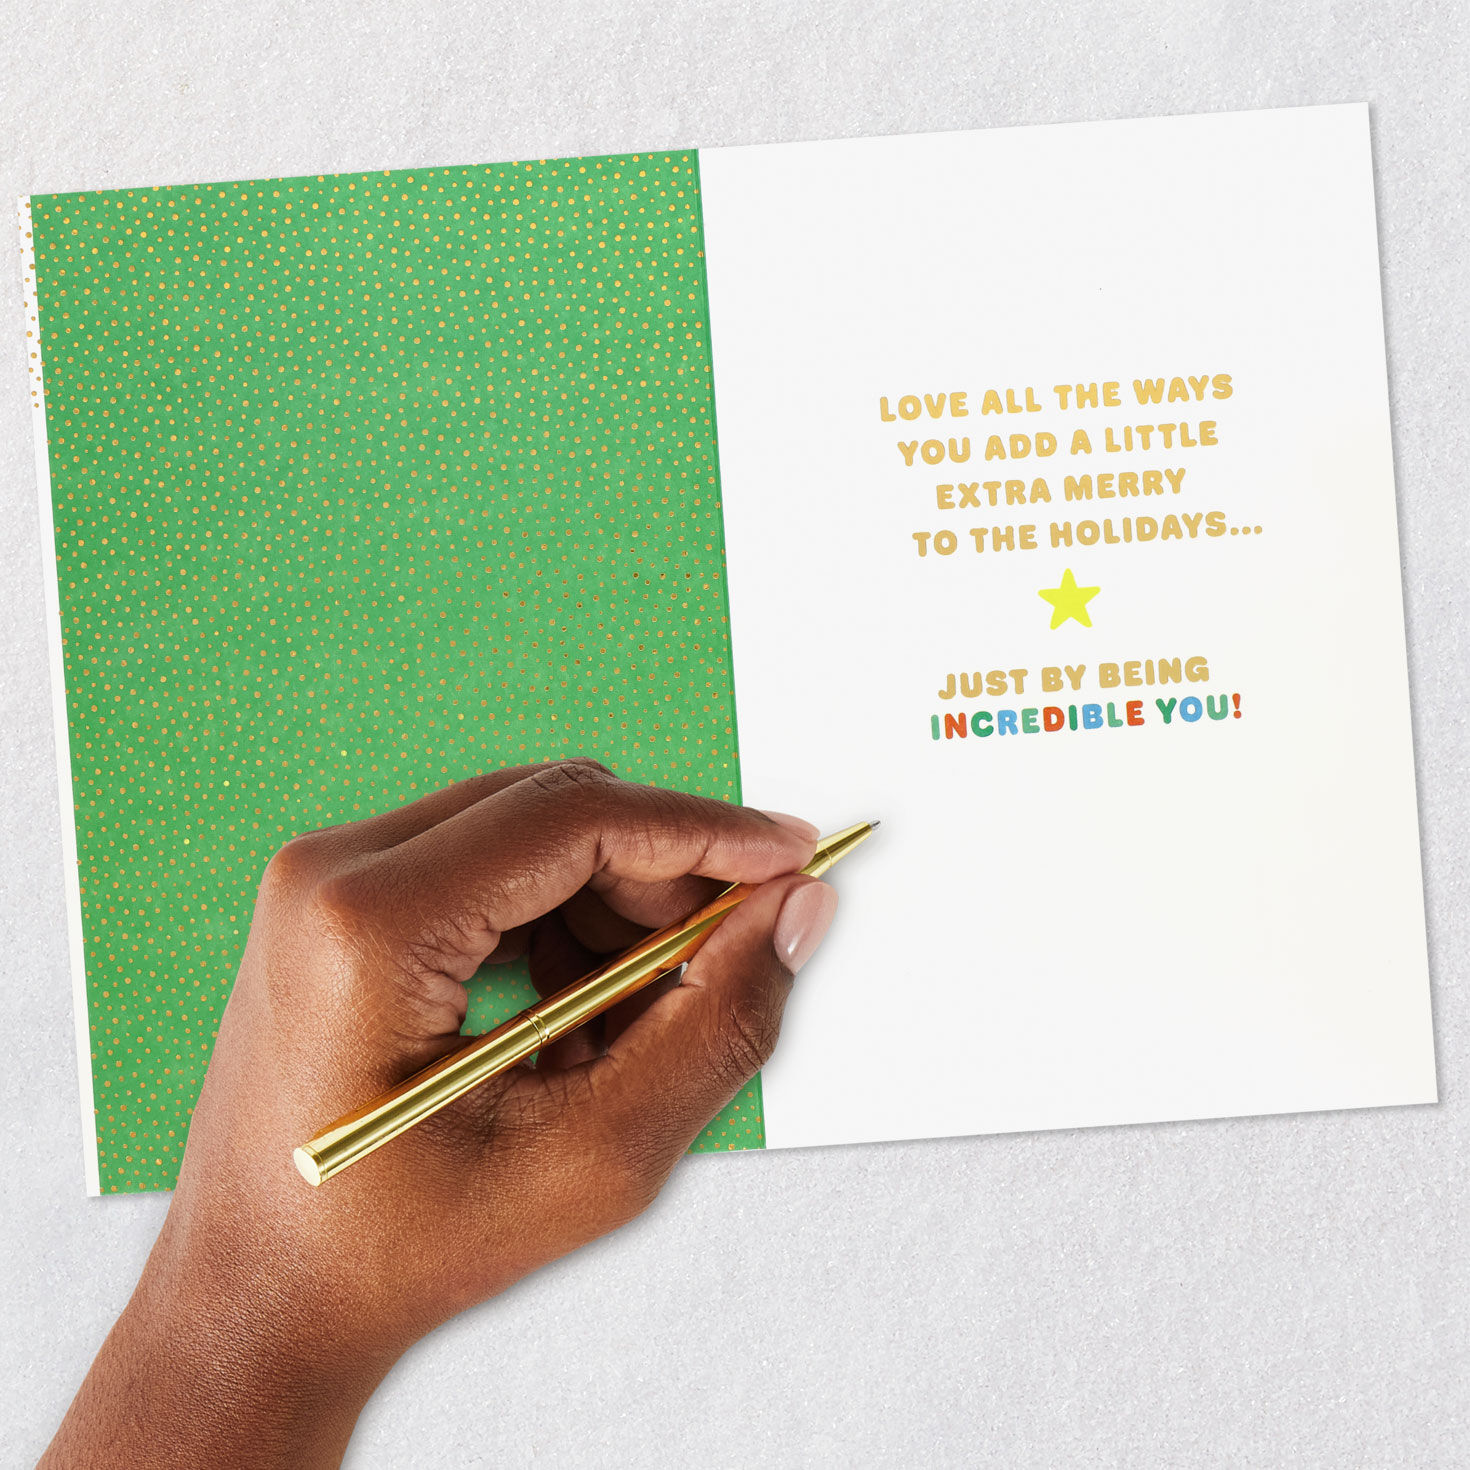 LOVE ALL THE WAYS
YOU ADD A LITTLE
EXTRA MERRY
TO THE HOLIDAYS...
JUST BY BEING
INCREDIBLE YOU!